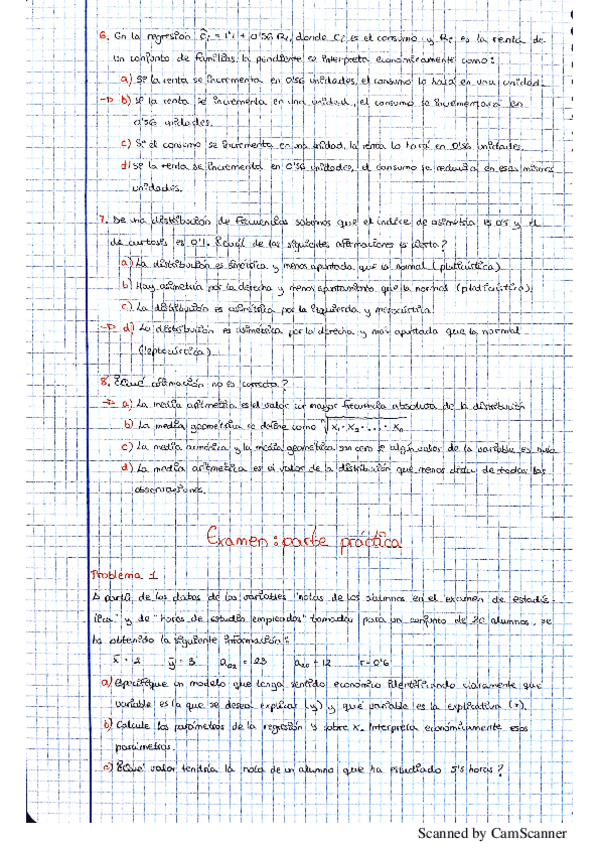 6. En la regresión Ĉi = 1'1 + 0'56 Ri, donde Ci es el consumo y Ri es la renta de
un conjunto de familias, la pendiente se interpreta económicamente como:
a) Si la renta se incrementa en 0'56 unidades, el consumo lo hará en una unidad.
→ b) Si la renta se incrementa en una unidad, el consumo se incrementará en
0'56 unidades.
c) Si el consumo se incrementa en una unidad, la renta lo hará en 0'56 unidades.
d) Si la renta se incrementa en 0'56 unidades, el consumo se reducirá en esas mismas
unidades.
7. De una distribución de frecuencias sabemos que el índice de asimetría es 0'5 y el
de curtosis es 0'1. ¿Cuál de las siguientes afirmaciones es cierta?
a) La distribución es simétrica y menos apuntada que la normal (platicúrtica)
b) Hay asimetría por la derecha y menos apuntamiento que la normal (platicúrtica).
c) La distribución es asimétrica por la izquierda y mesocúrtica.
→ d) La distribución es asimétrica por la derecha y más apuntada que la normal
(leptocúrtica)
8. ¿Qué afirmación no es correcta?
→ a) La media aritmética es el valor con mayor frecuencia absoluta de la distribución
b) La media geométrica se define como ⁿ√x₁·x₂·...·xₙ
c) La media aritmética y la media geométrica son cero si algún valor de la variable es nulo
d) La media aritmética es el valor de la distribución que menos dista de todas las
observaciones.
Examen: parte práctica
Problema 1
A partir de los datos de las variables "notas de los alumnos en el examen de estadís-
tica" y de "horas de estudio empleadas" tomadas para un conjunto de 20 alumnos, se
ha obtenido la siguiente información:
x̄ = 2 ȳ = 3 a₀₂ = 23 a₂₀ = 12 r = 0'6
a) Especifique un modelo que tenga sentido económico identificando claramente qué
variable es la que se desea explicar (y) y qué variable es la explicativa (x).
b) Calcule los parámetros de la regresión y sobre x. Interpreta económicamente esos
parámetros.
c) ¿Qué valor tendría la nota de un alumno que ha estudiado 5'5 horas?
Scanned by CamScanner